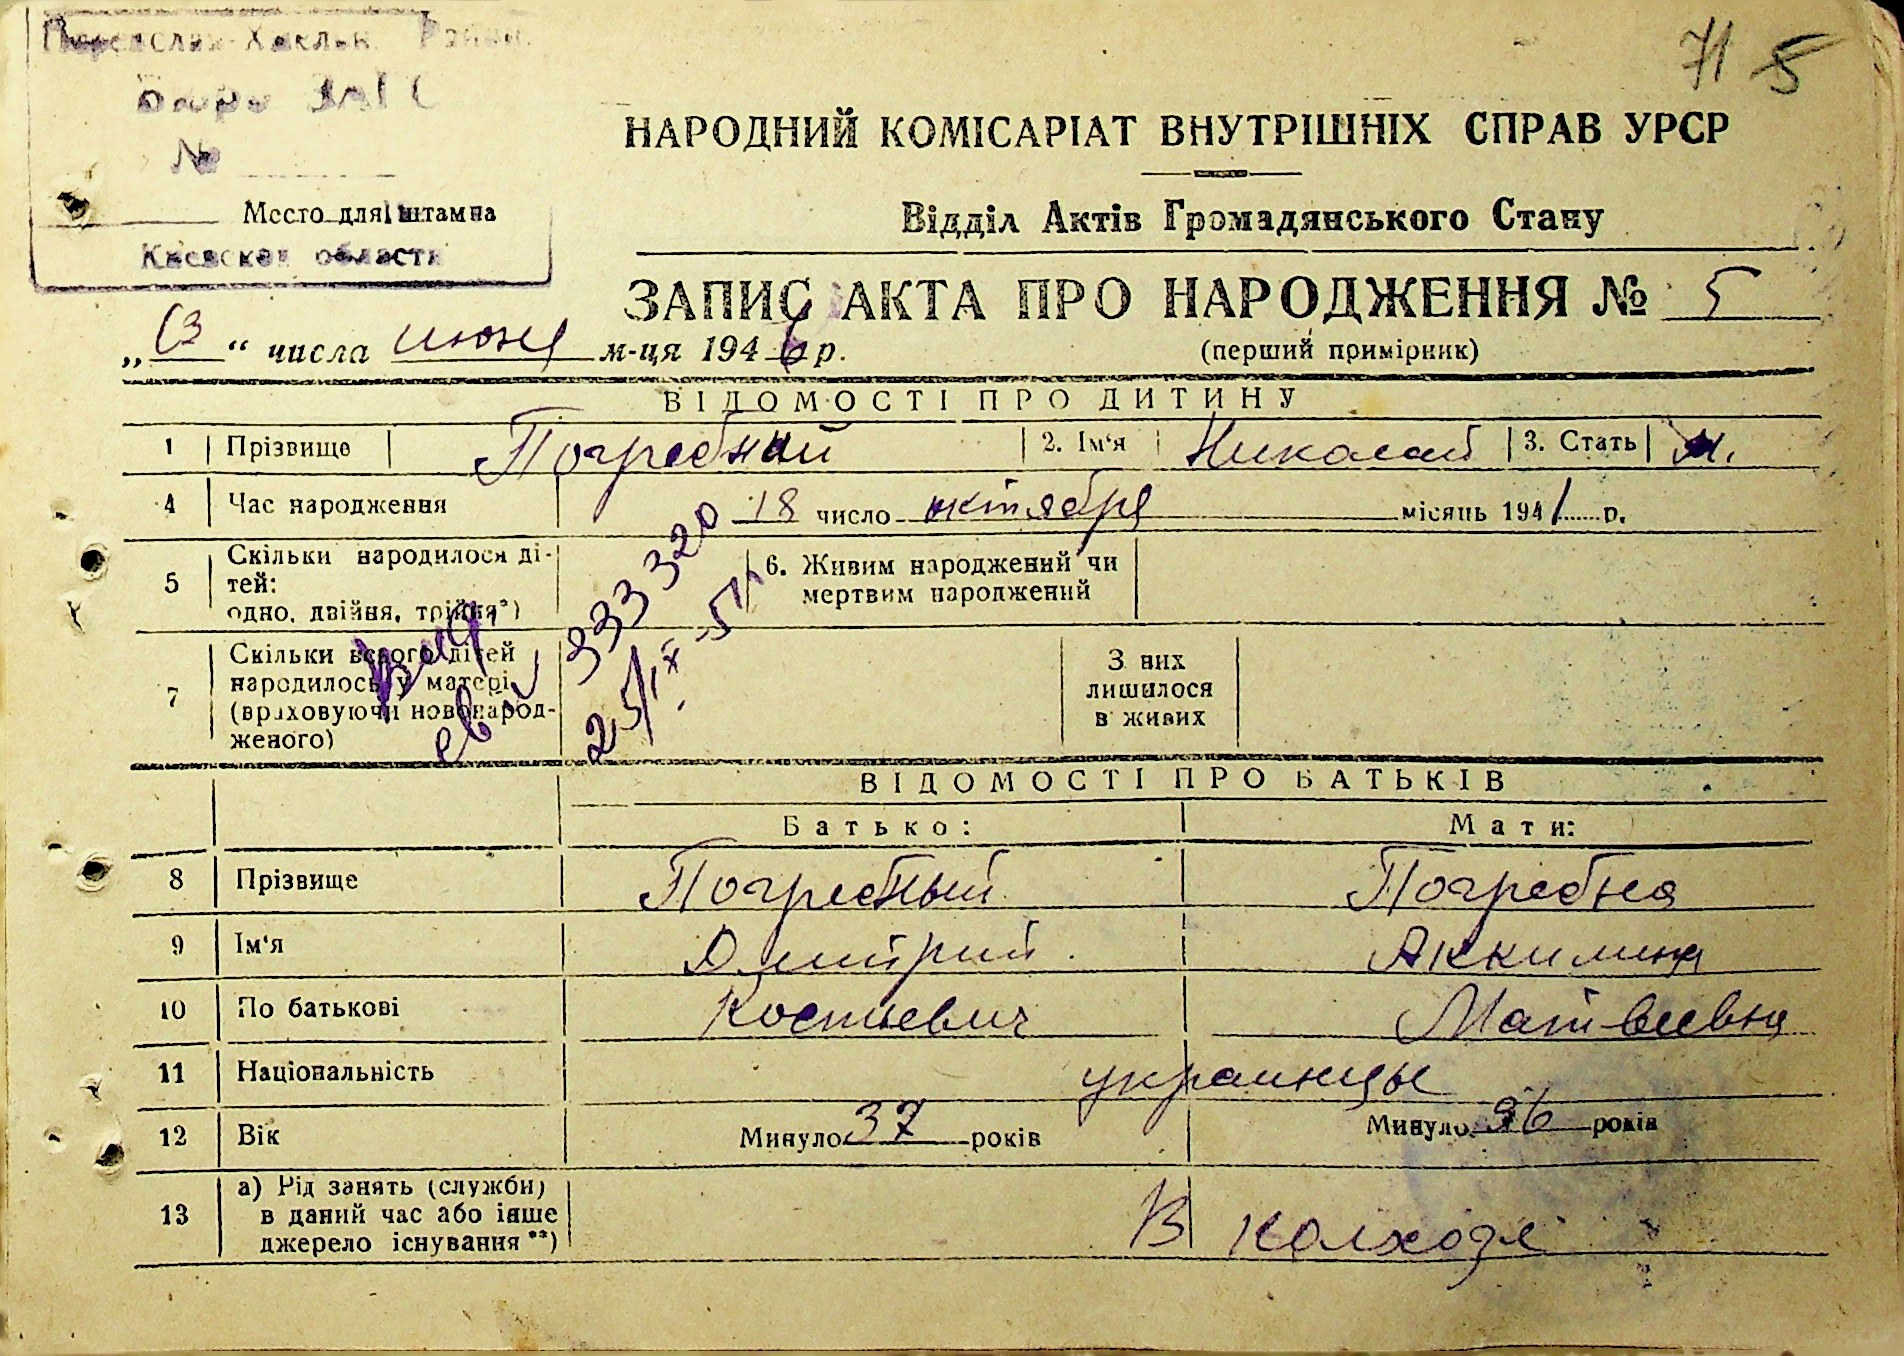 71 5
Бюро ЗАГС
№
Место для штампа
Киевская область
НАРОДНИЙ КОМІСАРІАТ ВНУТРІШНІХ СПРАВ УРСР
Відділ Актів Громадянського Стану
ЗАПИС АКТА ПРО НАРОДЖЕННЯ № 5
„13“ числа июня м-ця 1946 р.
(перший примірник)
ВІДОМОСТІ ПРО ДИТИНУ
1 Прізвище Погребний 2. Ім'я Николай 3. Стать м.
4 Час народження 18 число октября місяць 1941 р.
5 Скільки народилося ді-
тей:
одно, двійня, трійня*)
6. Живим народжений чи
мертвим народжений
333320
25/IX-51
7 Скільки всього дітей
народилось у матері
(враховуючи новонарод-
женого)
З них
лишилося
в живих
ВІДОМОСТІ ПРО БАТЬКІВ
Батько: Мати:
8 Прізвище Погребный Погребна
9 Ім'я Дмитрий Аккилина
10 По батькові Костиевич Матвеевна
11 Національність украинцы
12 Вік Минуло 37 років Минуло 36 років
13 а) Рід занять (служби)
в даний час або інше
джерело існування**)
В колхозе